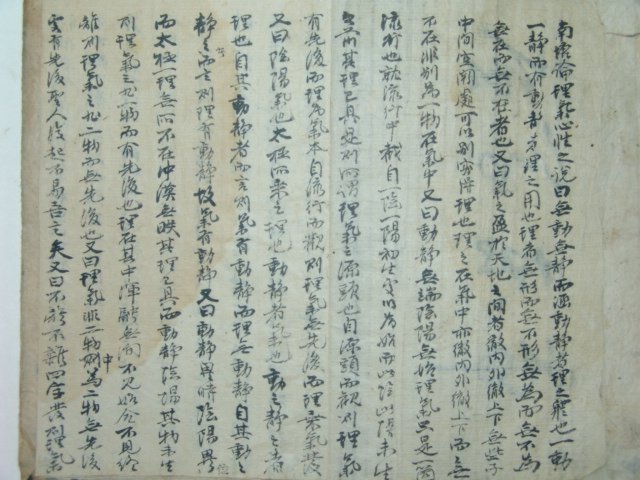 南塘論理氣心性之說曰無動無靜而涵動靜者理之體也一動
一靜而有動者理之用也理者無形而無不形無爲而無不爲
無在而無不在者也又曰氣之盈於天地之間者徹內外徹上下無些子
中間空闕處可以別寓得理也理之在氣中亦徹內外徹上下而之無
不在非別爲一物在氣中又曰動靜無端陰陽無始理氣只是一箇
流行也就流行中截自一陰一陽初生處以爲始而此陰此陽未生
之前其理已具是則所謂理氣之源頭也自源頭而觀則理氣
有先後而理爲氣本自流行而觀則理氣無先後而理乘氣發
又曰陰陽氣也太極所乘之理也動靜者氣也動之靜之者
理也自其動靜者而言則氣有動靜而理無動靜自其動之
靜之而言則理有動靜故氣有動靜又曰動靜異時陰陽異位
而太極一理無所不在沖漠無朕其理已具而動靜陰陽其物未生
則理氣之非一物而有先後也理在其中渾融無間不見始合不見終
離則理氣之非二物而無先後也又曰理氣非二物則爲二物無先後中
實有先後聖人復起不易吾言矣又曰不離不雜四字費則理氣